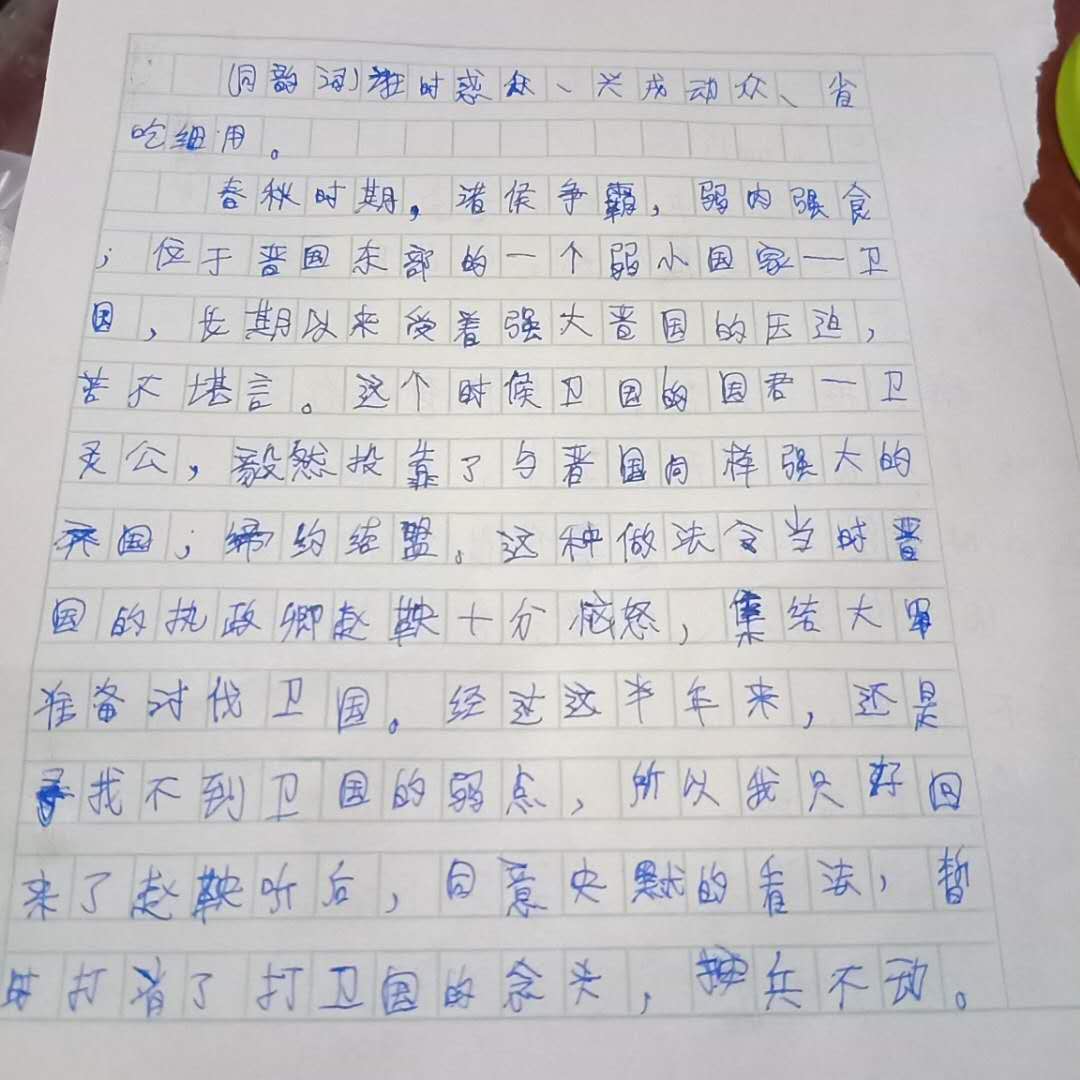 (同韵词)班时惑众、兴戎动众、省
吃细用。
春秋时期，诸侯争霸，弱肉强食
；位于晋国东部的一个弱小国家一卫
国，长期以来受着强大晋国的压迫，
苦不堪言。这个时候卫国的国君一卫
灵公，毅然投靠了与晋国同样强大的
齐国；缔约结盟。这种做法令当时晋
国的执政卿赵鞅十分恼怒，集结大军
准备讨伐卫国。经过这半年来，还是
寻找不到卫国的弱点，所以我只好回
来了赵鞅听后，同意史默的看法，暂
时打消了打卫国的念头，按兵不动。